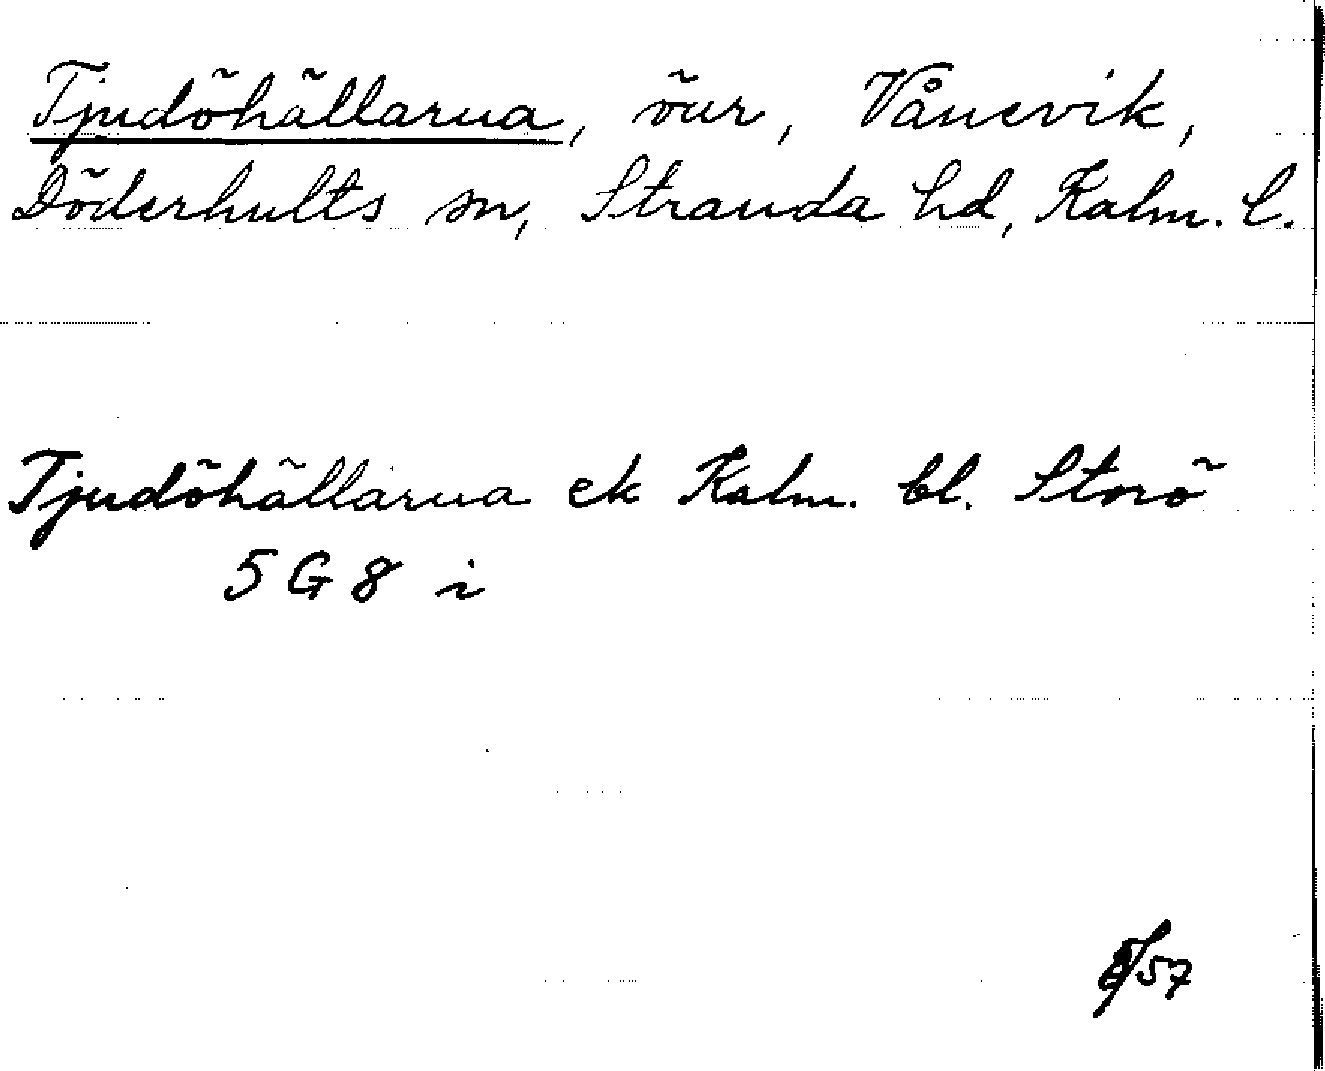 Tjudöhällarna, öar, Vånevik,
Döderhults sn, Stranda hd, Kalm. l.
Tjudöhällarna ek Kalm. bl. Storö
5 G 8 i